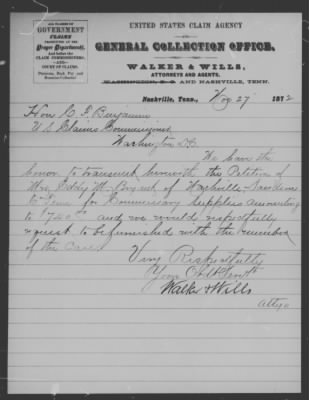 ALL CLASSES OF
GOVERNMENT
CLAIMS
PROSECUTED IN THE
Proper Department,
And before the
CLAIM COMMISSIONERS,
—AND—
COURT OF CLAIMS.
Pensions, Back Pay and
Bounties Collected
UNITED STATES CLAIM AGENCY
—AND—
GENERAL COLLECTION OFFICE,
WALKER & WILLS,
ATTORNEYS AND AGENTS,
WASHINGTON, D. C. AND NASHVILLE, TENN.
Nashville, Tenn., 27 1872
Hon C. F. Benjamin
U S Claims Commissions
Washington D.C.
We have the
honor to transmit herewith the Petition of
Mrs M. Bryant of Nashville Davidson
Co Tenn for Commissary Supplies amounting
to $740 and we would respectfully
request to be furnished with the number
of the Case.
Very Respectfully
Your Obt Servt
Walker & Wills
Attys